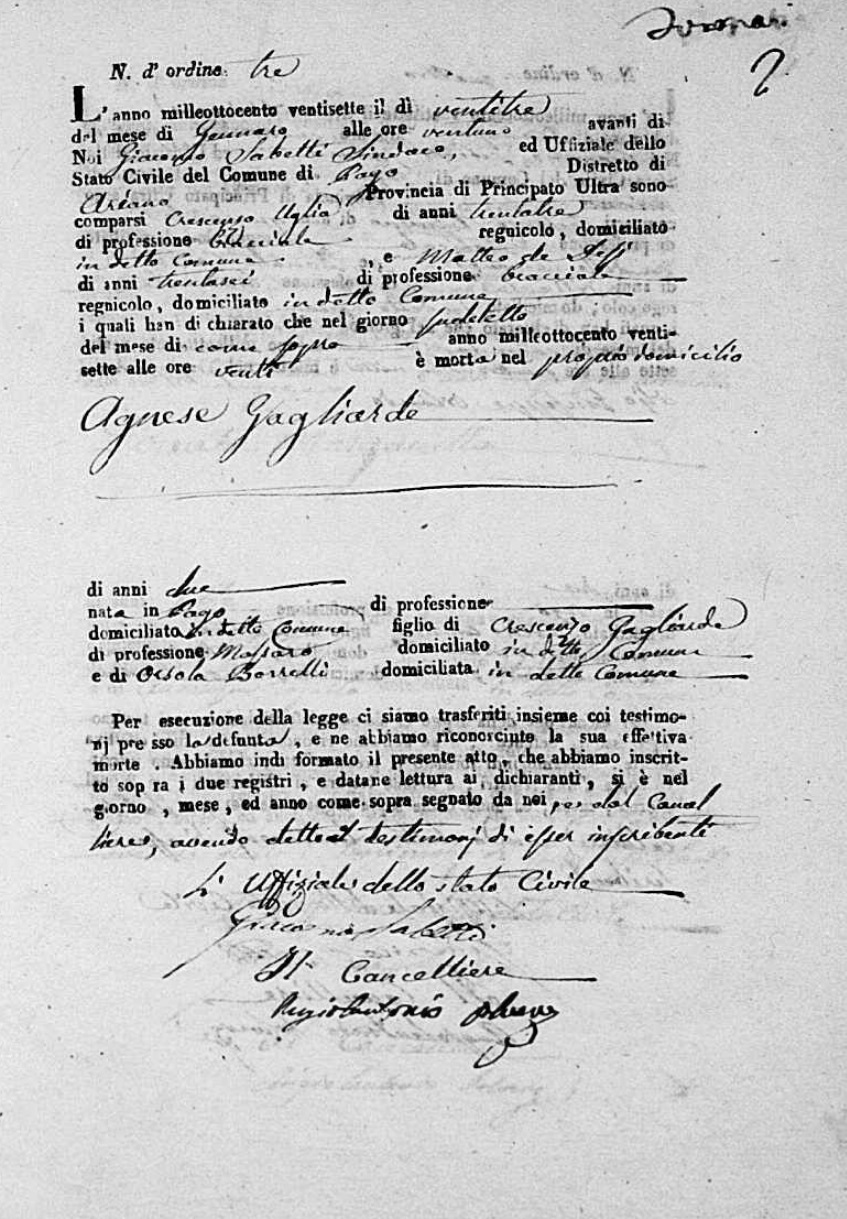 2
N. d' ordine tre
L' anno milleottocento ventisette il dì ventitre
del mese di Gennaro alle ore ventuno avanti di
Noi Giacomo Sabetti Sindaco, ed Uffiziale dello
Stato Civile del Comune di Pago Distretto di
Ariano Provincia di Principato Ultra sono
comparsi Crescenzo Uglia di anni trentatre
di professione bracciale regnicolo, domiciliato
in detto Comune, e Matteo de
di anni trentasei di professione bracciale
regnicolo, domiciliato in detto Comune
i quali han di chiarato che nel giorno sudetto
del mese di come sopra anno milleottocento venti-
sette alle ore venti è morta nel proprio domicilio
Agnese Gagliarde
di anni due
nata in Pago di professione
domiciliato in detto Comune figlio di Crescenzo Gagliarde
di professione Massaro domiciliato in detto Comune
e di Orsola Borrelli domiciliata in detto Comune
Per esecuzione della legge ci siamo trasferiti insieme coi testimo-
nj presso la defunta, e ne abbiamo riconosciuto la sua effettiva
morte. Abbiamo indi formato il presente atto, che abbiamo inscrit-
to sopra i due registri, e datane lettura ai dichiaranti, si è nel
giorno, mese, ed anno come sopra segnato da noi, e dal Cancel
liere, avendo detto i testimonj di esser inscribenti
L' Uffiziale dello stato Civile
Giacomo Sabetti
Il Cancelliere